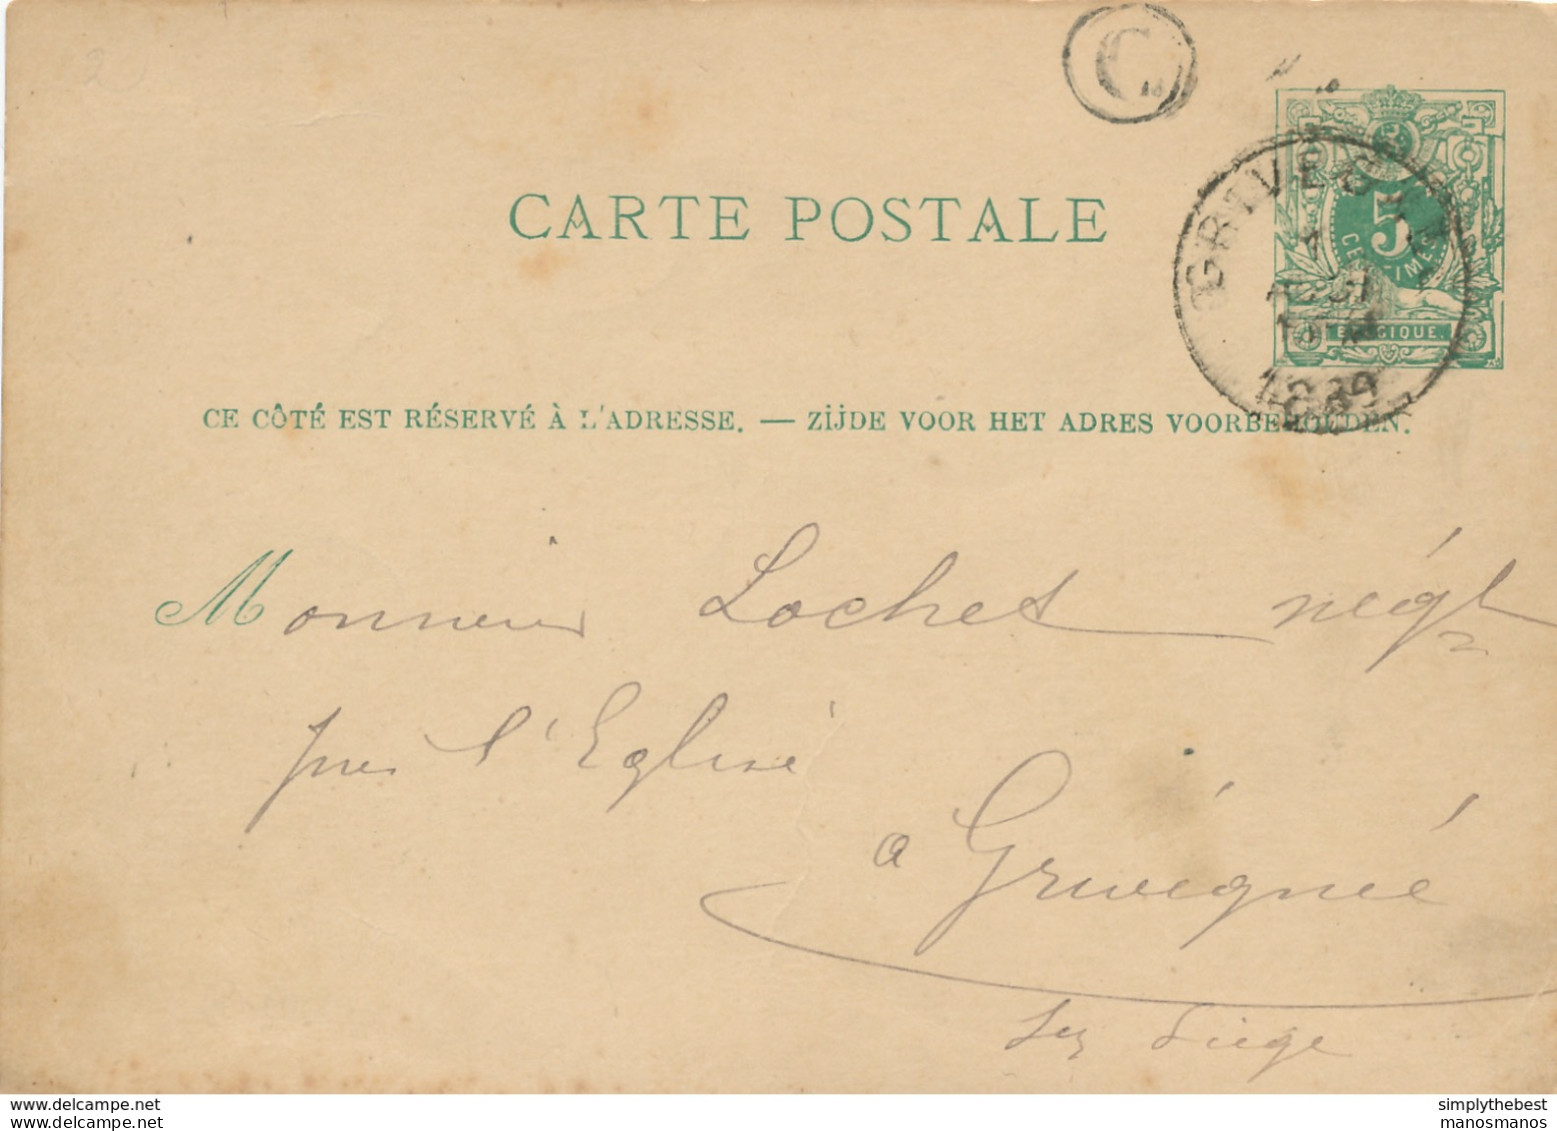 C
CARTE POSTALE
GRIVEGNÉE
5
CENTIMES
7
AOUT
1889
BELGIQUE.
CE CÔTÉ EST RÉSERVÉ À L'ADRESSE. — ZIJDE VOOR HET ADRES VOORBEHOUDEN.
Monsieur Lochet négt
près l'Eglise
à Grivégnée
lez Liége
delcampe.net
simplythebest
manosmanos